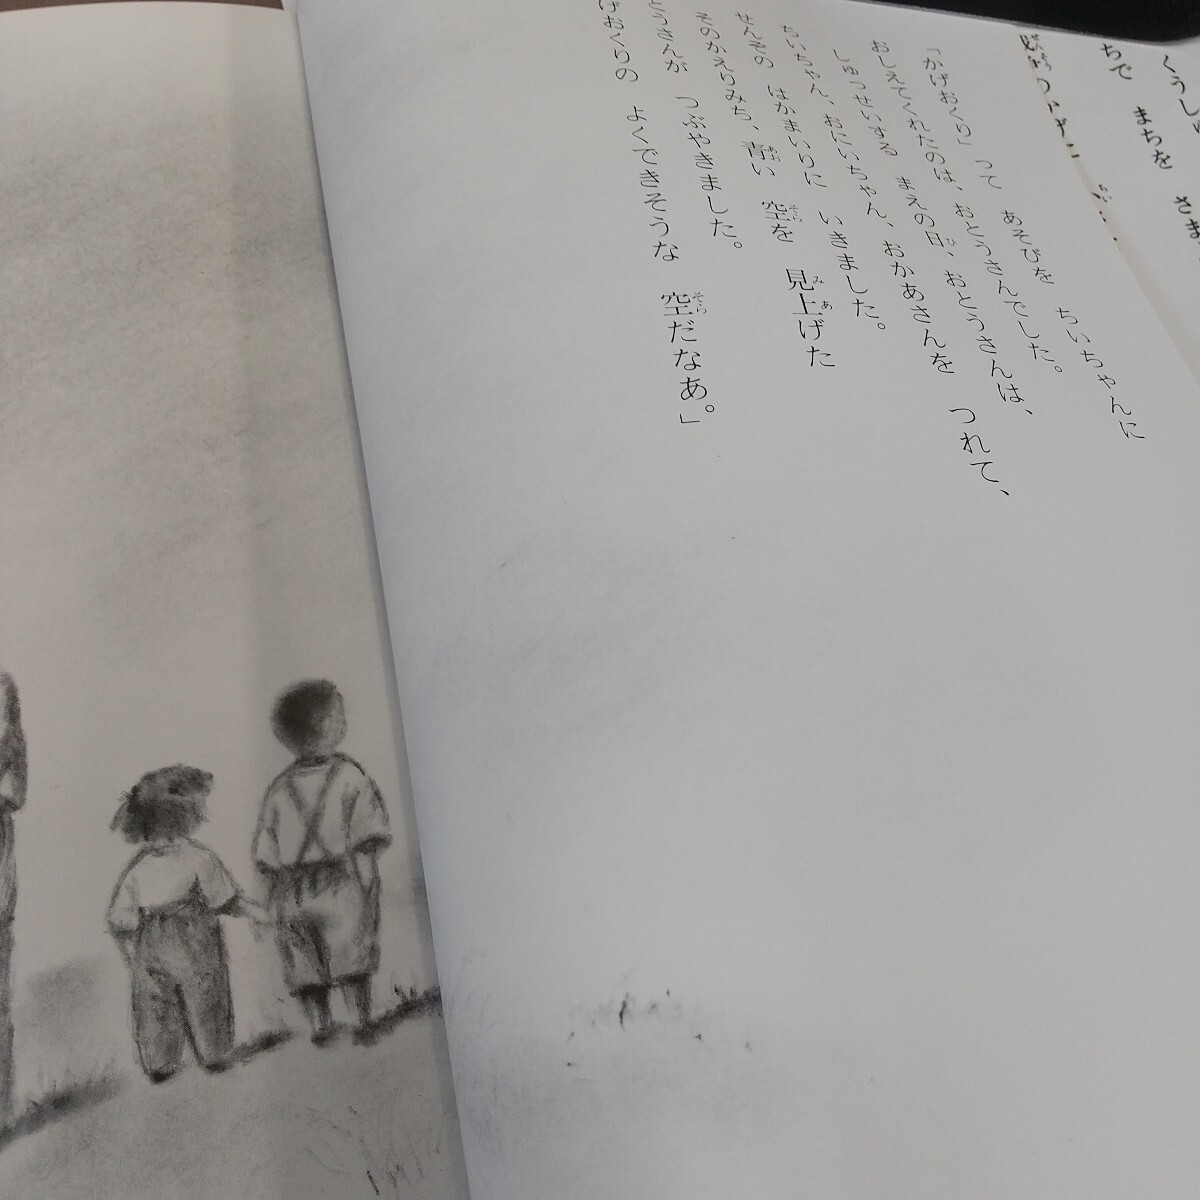 くうしゅ
ちで　まちを　さま
「かげおくり」って　あそびを　ちいちゃんに
おしえてくれたのは、おとうさんでした。
しゅっせいする　まえの日、おとうさんは、
ちいちゃん、おにいちゃん、おかあさんを　つれて、
せんぞの　はかまいりに　いきました。
そのかえりみち、青い　空を　見上げた
とうさんが　つぶやきました。
げおくりの　よくできそうな　空だなあ。」